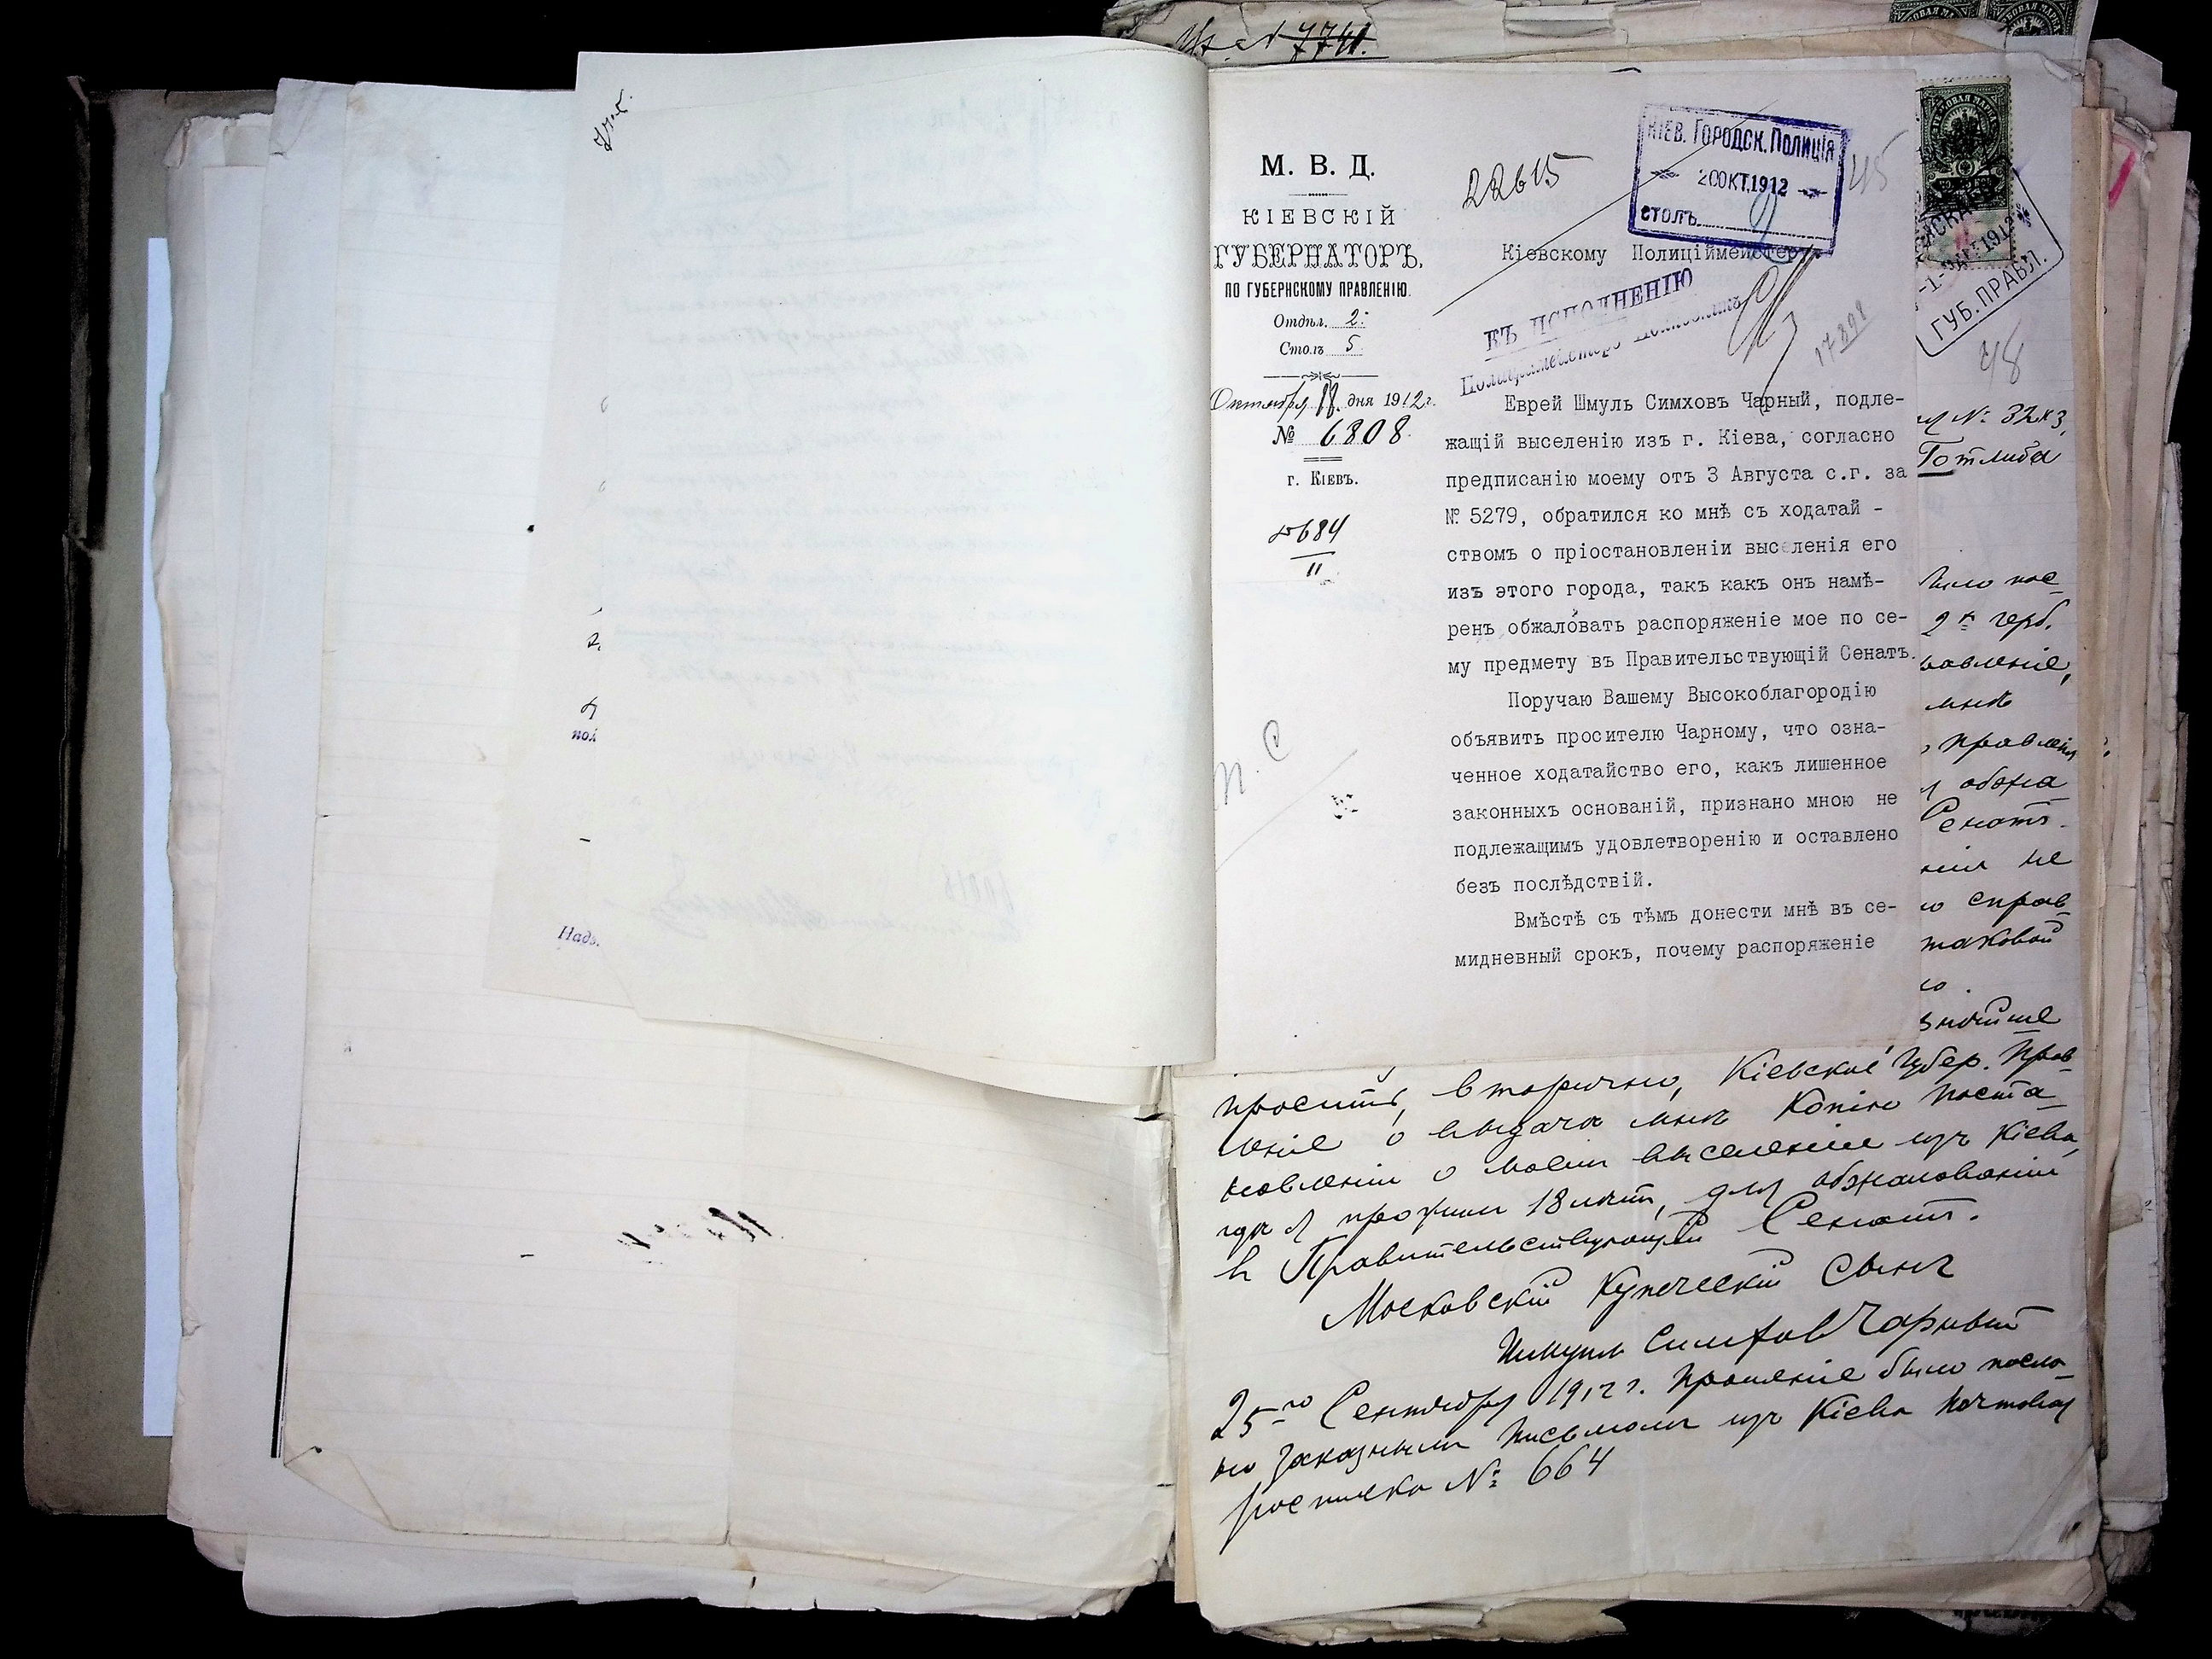 № 7741.
М. В. Д.
КІЕВСКІЙ
ГУБЕРНАТОРЪ,
ПО ГУБЕРНСКОМУ ПРАВЛЕНІЮ.
Отдѣл. 2.
Столъ 5
Октября 11 дня 1912 г.
№ 6808.
г. Кіевъ.
5684
11
22615
КІЕВ. ГОРОДСК. ПОЛИЦІЯ
20 ОКТ. 1912
СТОЛЪ
45
Кіевскому Полиціймейстеру.
КЪ ИСПОЛНЕНІЮ
17891
Еврей Шмуль Симховъ Чарный, подле-
жащій выселенію изъ г. Кіева, согласно
предписанію моему отъ 3 Августа с.г. за
№ 5279, обратился ко мнѣ съ ходатай -
ствомъ о пріостановленіи выселенія его
изъ этого города, такъ какъ онъ намѣ-
ренъ обжаловать распоряженіе мое по се-
му предмету въ Правительствующій Сенатъ.
Поручаю Вашему Высокоблагородію
объявить просителю Чарному, что озна-
ченное ходатайство его, какъ лишенное
законныхъ основаній, признано мною не
подлежащимъ удовлетворенію и оставлено
безъ послѣдствій.
Вмѣстѣ съ тѣмъ донести мнѣ въ се-
мидневный срокъ, почему распоряженіе
ГУБ. ПРАВЛ.
48
Готлиба
2 х герб.
мнѣ
Сенатъ.
не
справ
таковой
просить, вторично, Кіевское Губер. Прав
леніе о выдачи мнѣ Копію поста-
новленіи о моем выселеніи изъ Кіева,
гдѣ я прожил 18 лѣтъ, для обжалованіи
в Правительствующій Сенатъ.
Московскій Купеческій Сынъ
Шмуил Симхов Чарный
25го Сентября 1912 г. Прошеніе было посла-
но заказным письмом изъ Кіева почтовая
росписка № 664
пол
Надз.